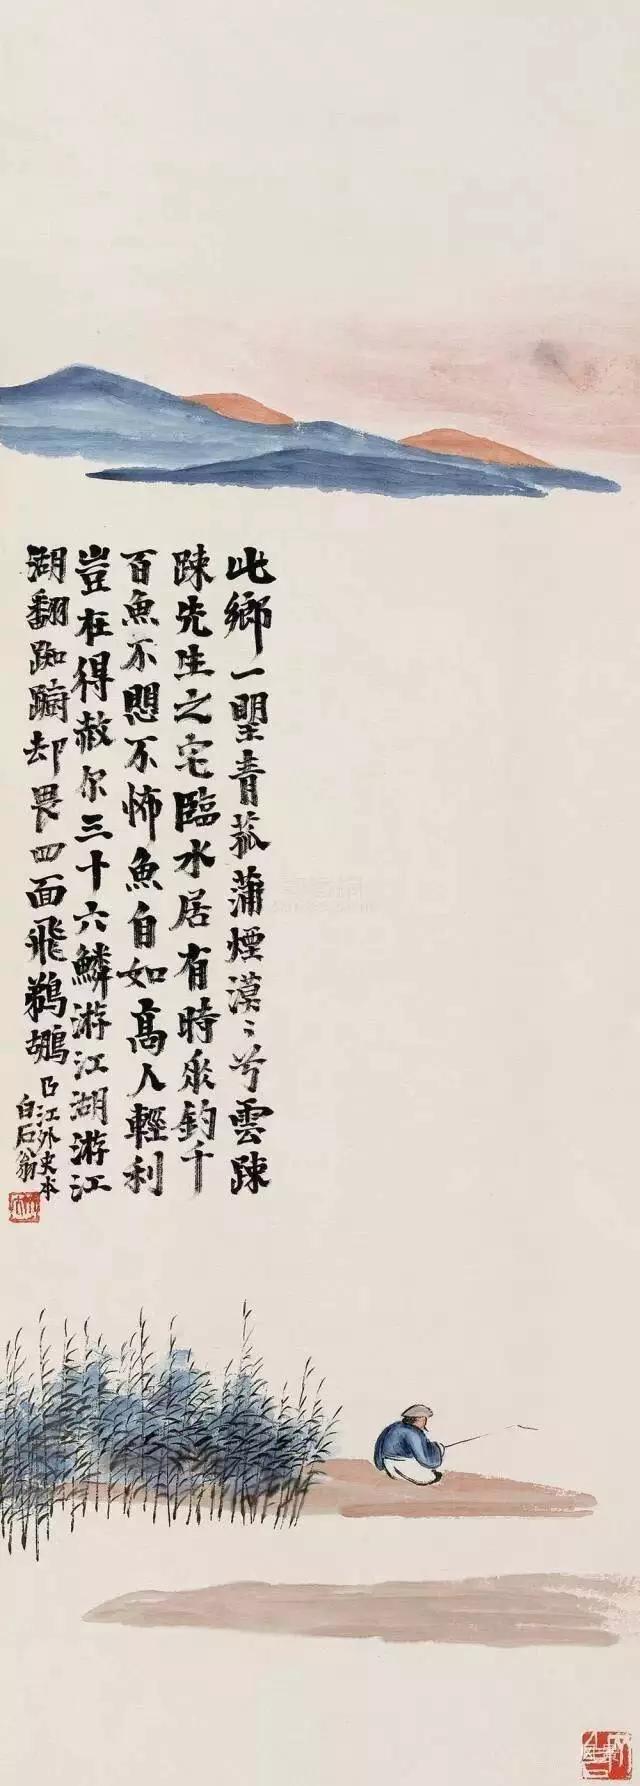 此鄉一望青菰蒲煙漠〻兮雲踈
踈先生之宅臨水居有時垂釣千
百魚不愳不怖魚自如高人輕利
豈在得赦尔三十六鱗游江湖游江
湖翻踟躕却畏四面飛鵜鶘
曲江外史本
白石翁